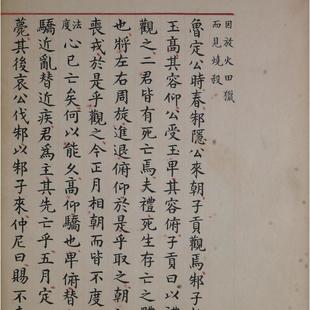 因放火田獵
而見燒殺
魯定公時春邾隱公來朝子貢觀焉邾子
玉高其容仰公受玉卑其容俯子貢曰以禮
觀之二君皆有死亡焉夫禮死生存亡之體
也將左右周旋進退俯仰於是乎取之朝
喪戎於是乎觀之今正月相朝而皆不度
法度
心已亡矣何以能久高仰驕也卑俯替
驕近亂替近疾君為主其先亡乎五月定
薨其後哀公伐邾以邾子來仲尼曰賜不